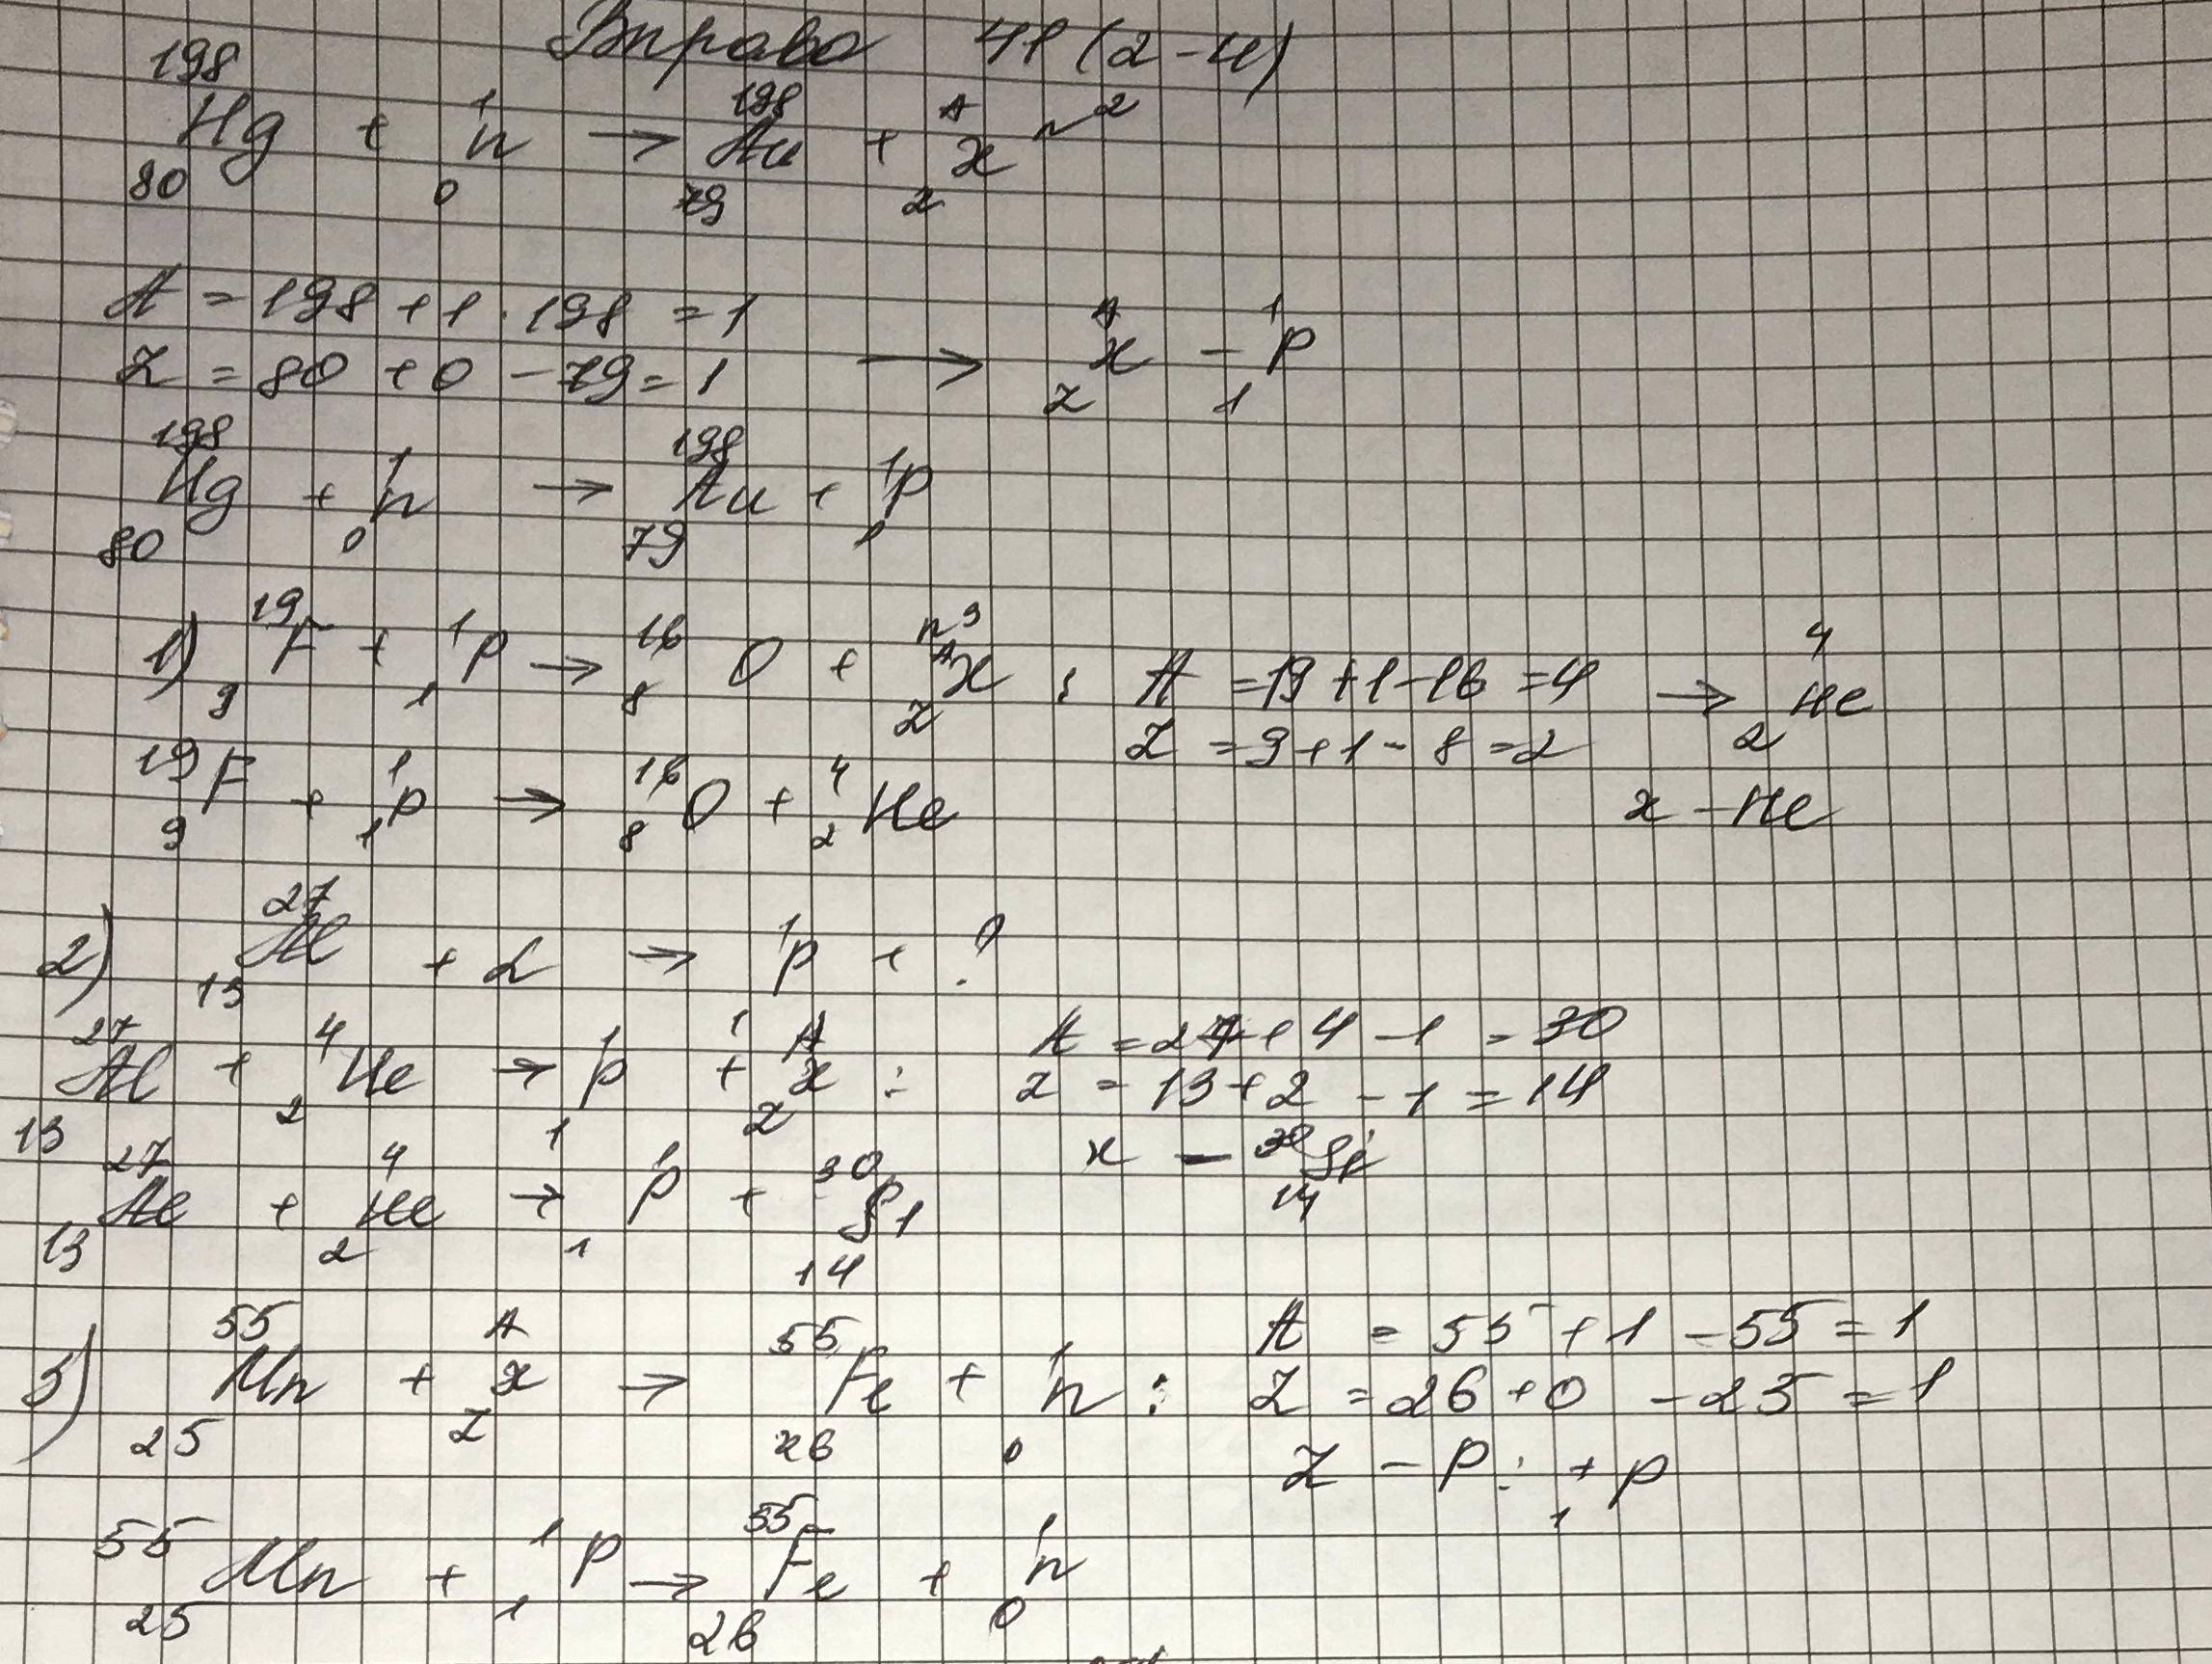 Вправа 41 (2-4)
¹⁹⁸₈₀Hg + ¹₀n → ¹⁹⁸₇₉Au + ᴬ₂x n2
A = 198 + 1 · 198 = 1
Z = 80 + 0 - 79 = 1 → ᴬ_Z x - ¹₁p
¹⁹⁸₈₀Hg + ¹₀n → ¹⁹⁸₇₉Au + ¹p
1) ¹⁹₉F + ¹₁p → ¹⁶₈O + ᴬ_Z x n3 ; A = 19 + 1 - 16 = 4 → ⁴₂He
Z = 9 + 1 - 8 = 2
¹⁹₉F + ¹₁p → ¹⁶₈O + ⁴₂He x - He
2) ²⁷₁₃Al + α → ¹p + ?
²⁷₁₃Al + ⁴₂He → ¹₁p + ᴬ_Z x : A = 27 + 4 - 1 = 30
Z = 13 + 2 - 1 = 14
x - ³⁰₁₄Si
²⁷₁₃Al + ⁴₂He → ¹₁p + ³⁰₁₄Si
3) ⁵⁵₂₅Mn + ᴬ_Z x → ⁵⁵₂₆Fe + ¹₀n : A = 55 + 1 - 55 = 1
Z = 26 + 0 - 25 = 1
Z - p : + ₁p
⁵⁵₂₅Mn + ¹₁p → ⁵⁵₂₆Fe + ¹₀n